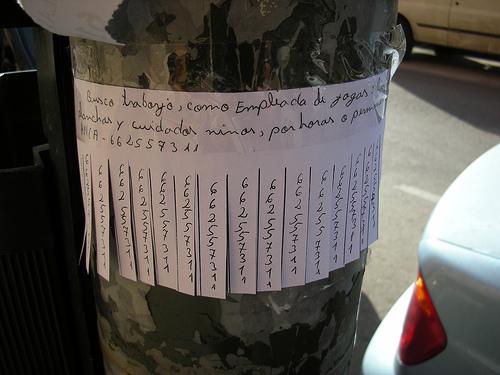 Busco trabajo, como Empleada de
planchas y cuidados niños, por horas o
ANCA - 662557311
662557311
662557311
662557311
662557311
662557311
662557311
662557311
662557311
662557311
662557311
662557311